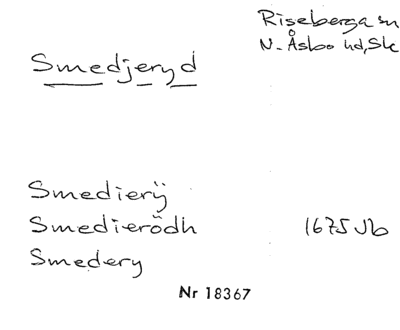 Riseberga sn
N. Åsbo hd, Sk
Smedjeryd
Smedierÿ
Smedierödh 1675 Jb
Smedery
Nr 18367